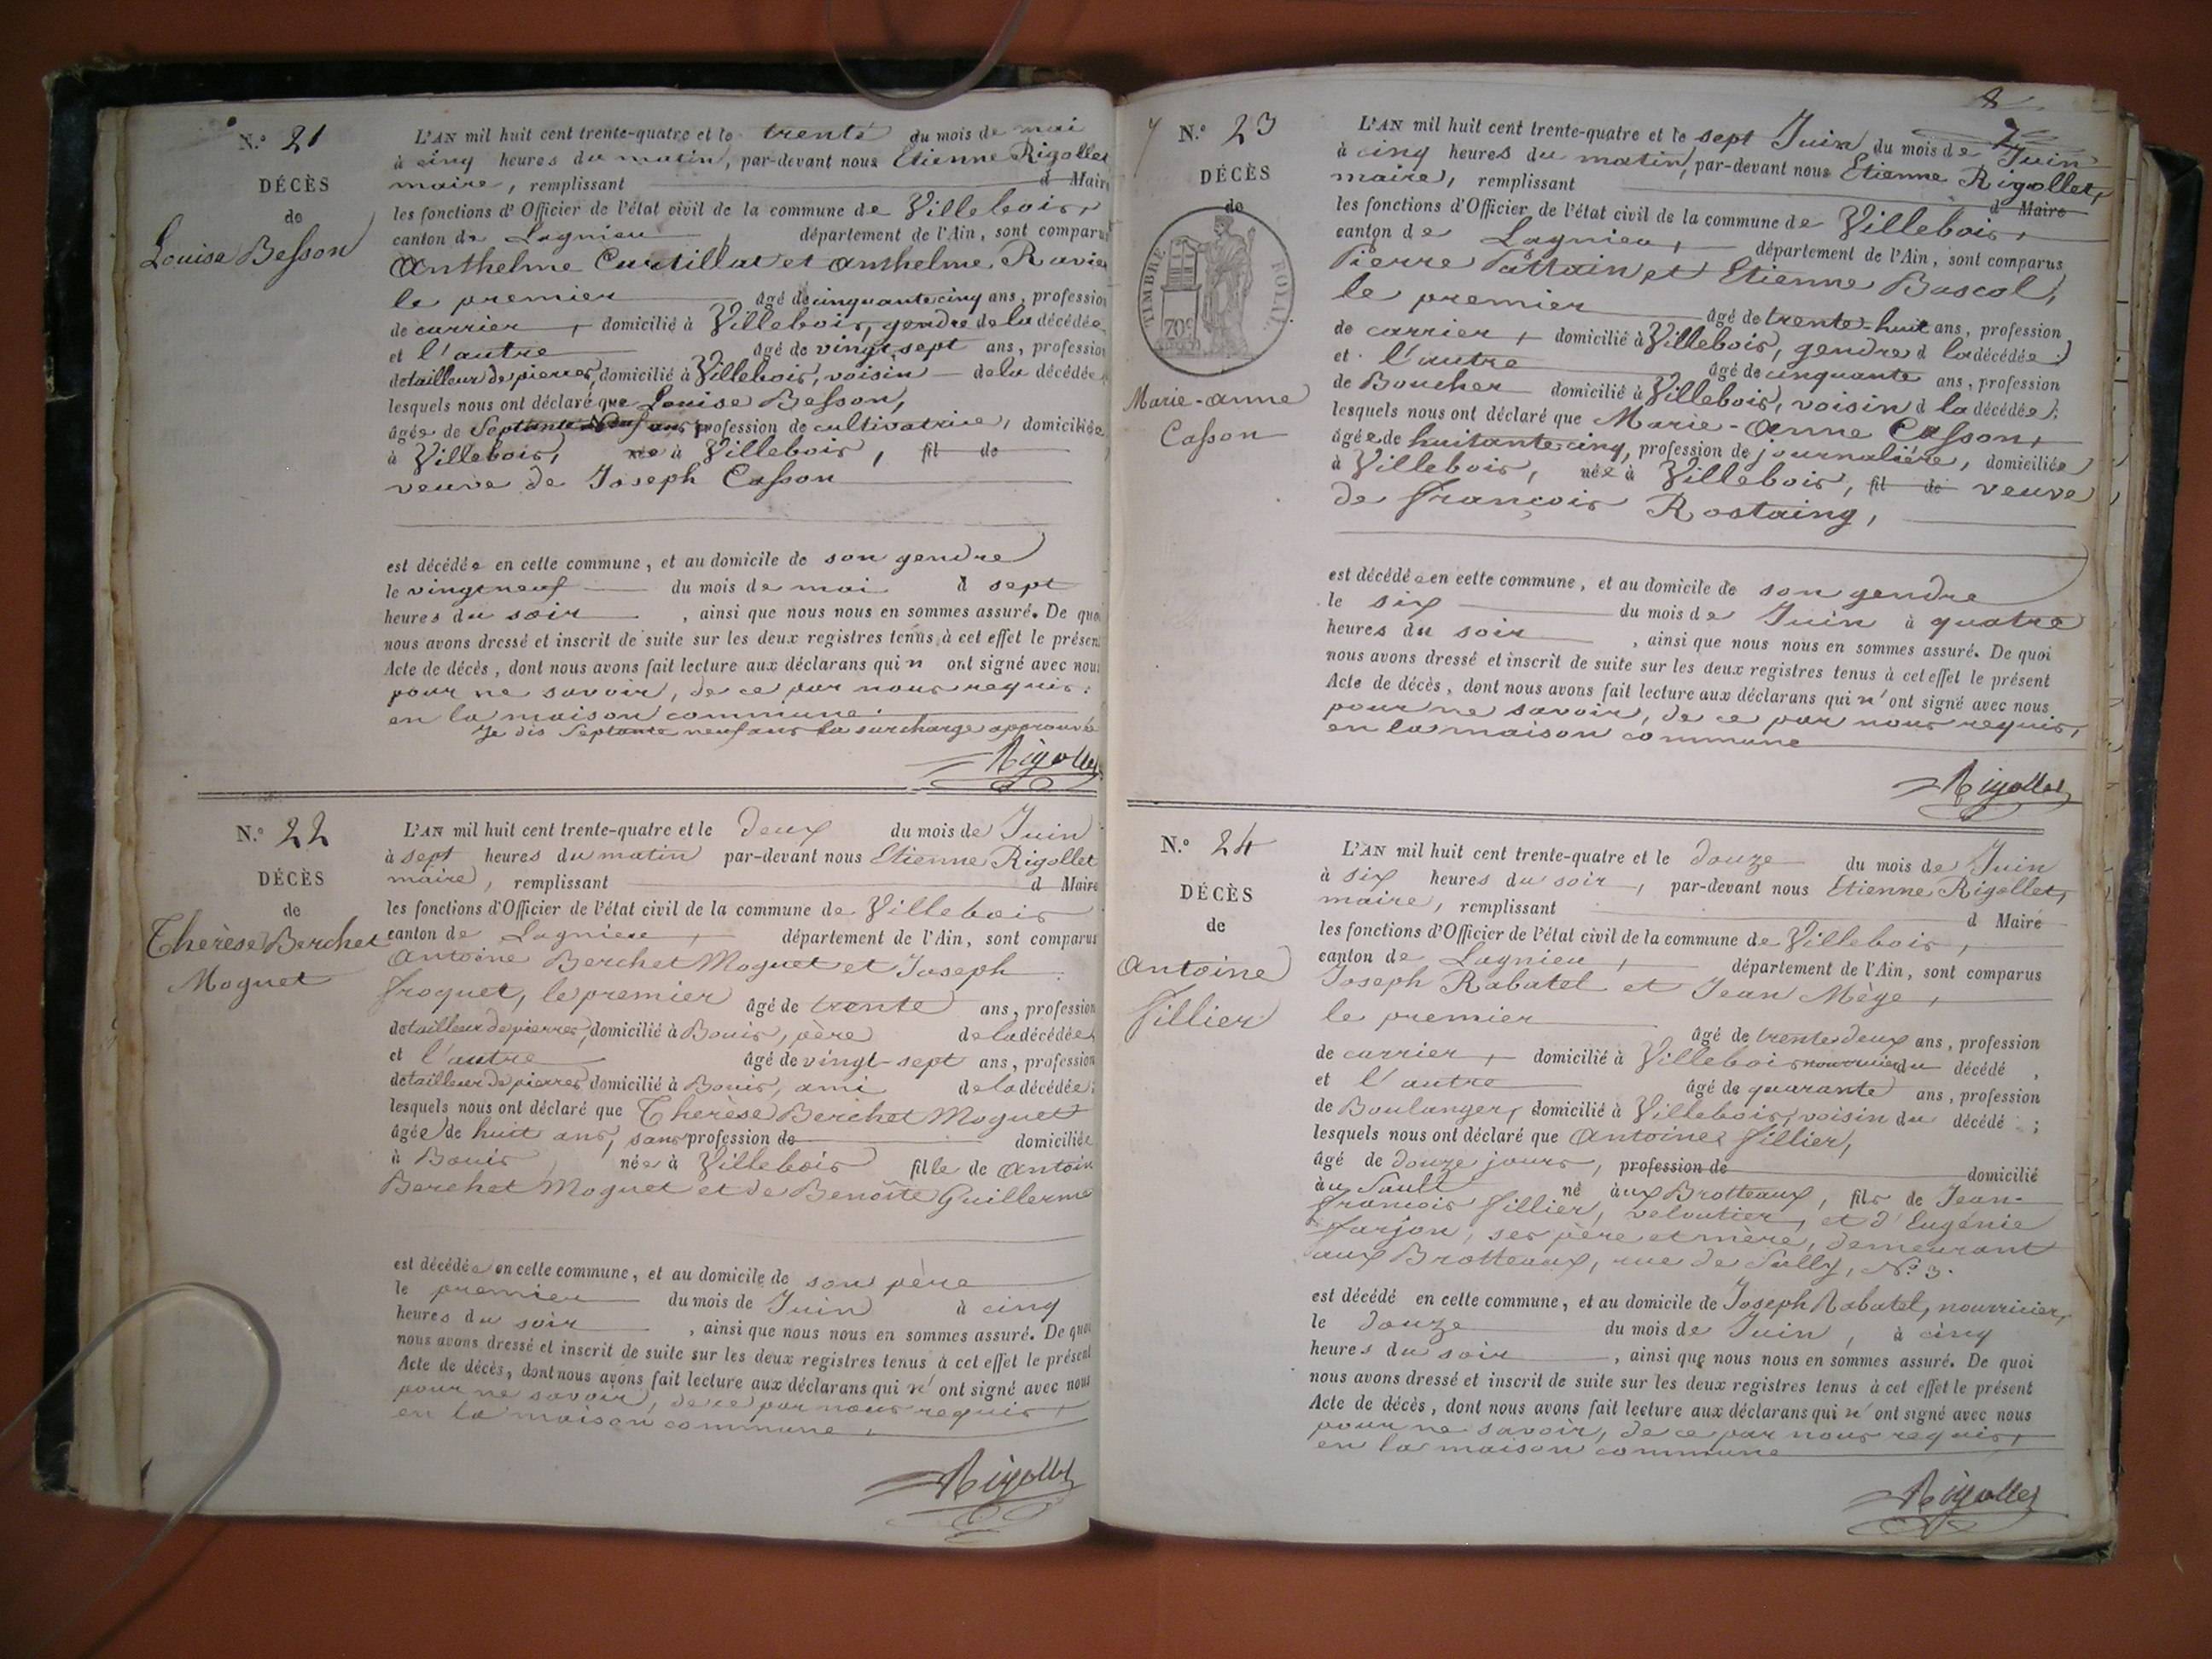 N.o 21
DÉCÈS
de
Louise Besson
L'AN mil huit cent trente-quatre et le trente du mois de mai
à cinq heures du matin, par-devant nous Etienne Rigollet
maire, remplissant d Maire
les fonctions d'Officier de l'état civil de la commune de Villebois,
canton de Lagnieu, département de l'Ain, sont comparus
Anthelme Curtillat et Anthelme Ravier
le premier âgé de cinquante cinq ans, profession
de carrier, domicilié à Villebois, gendre de la décédée
et l'autre âgé de vingt sept ans, profession
de tailleur de pierres, domicilié à Villebois, voisin de la décédée,
lesquels nous ont déclaré que Louise Besson,
âgée de Septante Neuf ans profession de cultivatrice, domiciliée
à Villebois, née à Villebois, fil de
veuve de Joseph Casson
est décédée en cette commune, et au domicile de son gendre
le vingt neuf du mois de mai à sept
heures du soir, ainsi que nous nous en sommes assuré. De quoi
nous avons dressé et inscrit de suite sur les deux registres tenus à cet effet le présent
Acte de décès, dont nous avons fait lecture aux déclarans qui n ont signé avec nous
pour ne savoir, de ce par nous requis.
en la maison commune.
Je dis Septante neuf ans la surcharge approuvée
Rigollet
N.o 22
DÉCÈS
de
Thérèse Berchet
Moguet
L'AN mil huit cent trente-quatre et le deux du mois de Juin
à sept heures du matin par-devant nous Etienne Rigollet
maire, remplissant d Maire
les fonctions d'Officier de l'état civil de la commune de Villebois
canton de Lagnieu, département de l'Ain, sont comparus
Antoine Berchet Moguet et Joseph
Froquet, le premier âgé de trente ans, profession
de tailleur de pierres, domicilié à Bouis, père de la décédée,
et l'autre âgé de vingt-sept ans, profession
de tailleur de pierres domicilié à Bouis, ami de la décédée;
lesquels nous ont déclaré que Thérèse Berchet Moguet
âgée de huit ans, sans profession de domiciliée
à Bouis née à Villebois fille de Antoin
Berchet Moguet et de Benoîte Guillerme
est décédée en cette commune, et au domicile de son père
le premier du mois de Juin à cinq
heures du soir, ainsi que nous nous en sommes assuré. De quoi
nous avons dressé et inscrit de suite sur les deux registres tenus à cet effet le présent
Acte de décès, dont nous avons fait lecture aux déclarans qui n' ont signé avec nous
pour ne savoir, de ce par nous requis,
en la maison commune.
Rigollet
N.o 23
DÉCÈS
de
TIMBRE ROYAL
70c
Marie-anne
Casson
L'AN mil huit cent trente-quatre et le sept Juin du mois de Juin
à cinq heures du matin, par-devant nous Etienne Rigollet,
maire, remplissant d Maire
les fonctions d'Officier de l'état civil de la commune de Villebois,
canton de Lagnieu, département de l'Ain, sont comparus
Pierre et Etienne Bascol,
le premier âgé de trente-huit ans, profession
de carrier, domicilié à Villebois, gendre d la décédée;
et l'autre âgé de cinquante ans, profession
de Boucher domicilié à Villebois, voisin d la décédée;
lesquels nous ont déclaré que Marie-Anne Casson,
âgée de huitante cinq, profession de journalière, domiciliée
à Villebois, née à Villebois, fil de veuve
de François Rostaing,
est décédée en cette commune, et au domicile de son gendre
le six du mois de Juin à quatre
heures du soir, ainsi que nous nous en sommes assuré. De quoi
nous avons dressé et inscrit de suite sur les deux registres tenus à cet effet le présent
Acte de décès, dont nous avons fait lecture aux déclarans qui n' ont signé avec nous
pour ne savoir, de ce par nous requis,
en la maison commune
Rigollet
N.o 24
DÉCÈS
de
Antoine
Fillier
L'AN mil huit cent trente-quatre et le douze du mois de Juin
à six heures du soir, par-devant nous Etienne Rigollet,
maire, remplissant d Maire
les fonctions d'Officier de l'état civil de la commune de Villebois,
canton de Lagnieu, département de l'Ain, sont comparus
Joseph Rabatel et Jean Mège,
le premier âgé de trente deux ans, profession
de carrier, domicilié à Villebois nourricier du décédé,
et l'autre âgé de quarante ans, profession
de Boulanger, domicilié à Villebois, voisin du décédé;
lesquels nous ont déclaré que Antoine Fillier,
âgé de douze jours, profession de domicilié
au Sault né aux Brotteaux, fils de Jean-
François Fillier, veloutier, et d'Eugénie
Farjon, ses père et mère, demeurant
aux Brotteaux, rue de Sully, No 3.
est décédé en cette commune, et au domicile de Joseph Rabatel, nourricier,
le douze du mois de Juin, à cinq
heures du soir, ainsi que nous nous en sommes assuré. De quoi
nous avons dressé et inscrit de suite sur les deux registres tenus à cet effet le présent
Acte de décès, dont nous avons fait lecture aux déclarans qui n' ont signé avec nous
pour ne savoir, de ce par nous requis,
en la maison commune
Rigollet